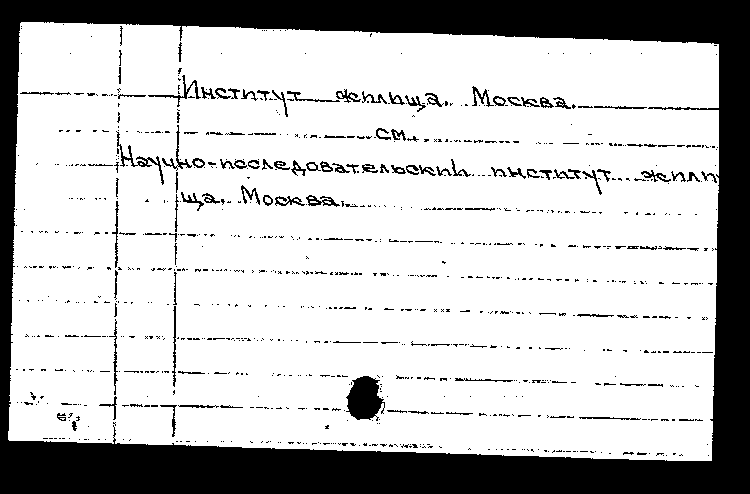 Институт жилища. Москва.
см.
Научно-последовательский институт жили
ща. Москва.